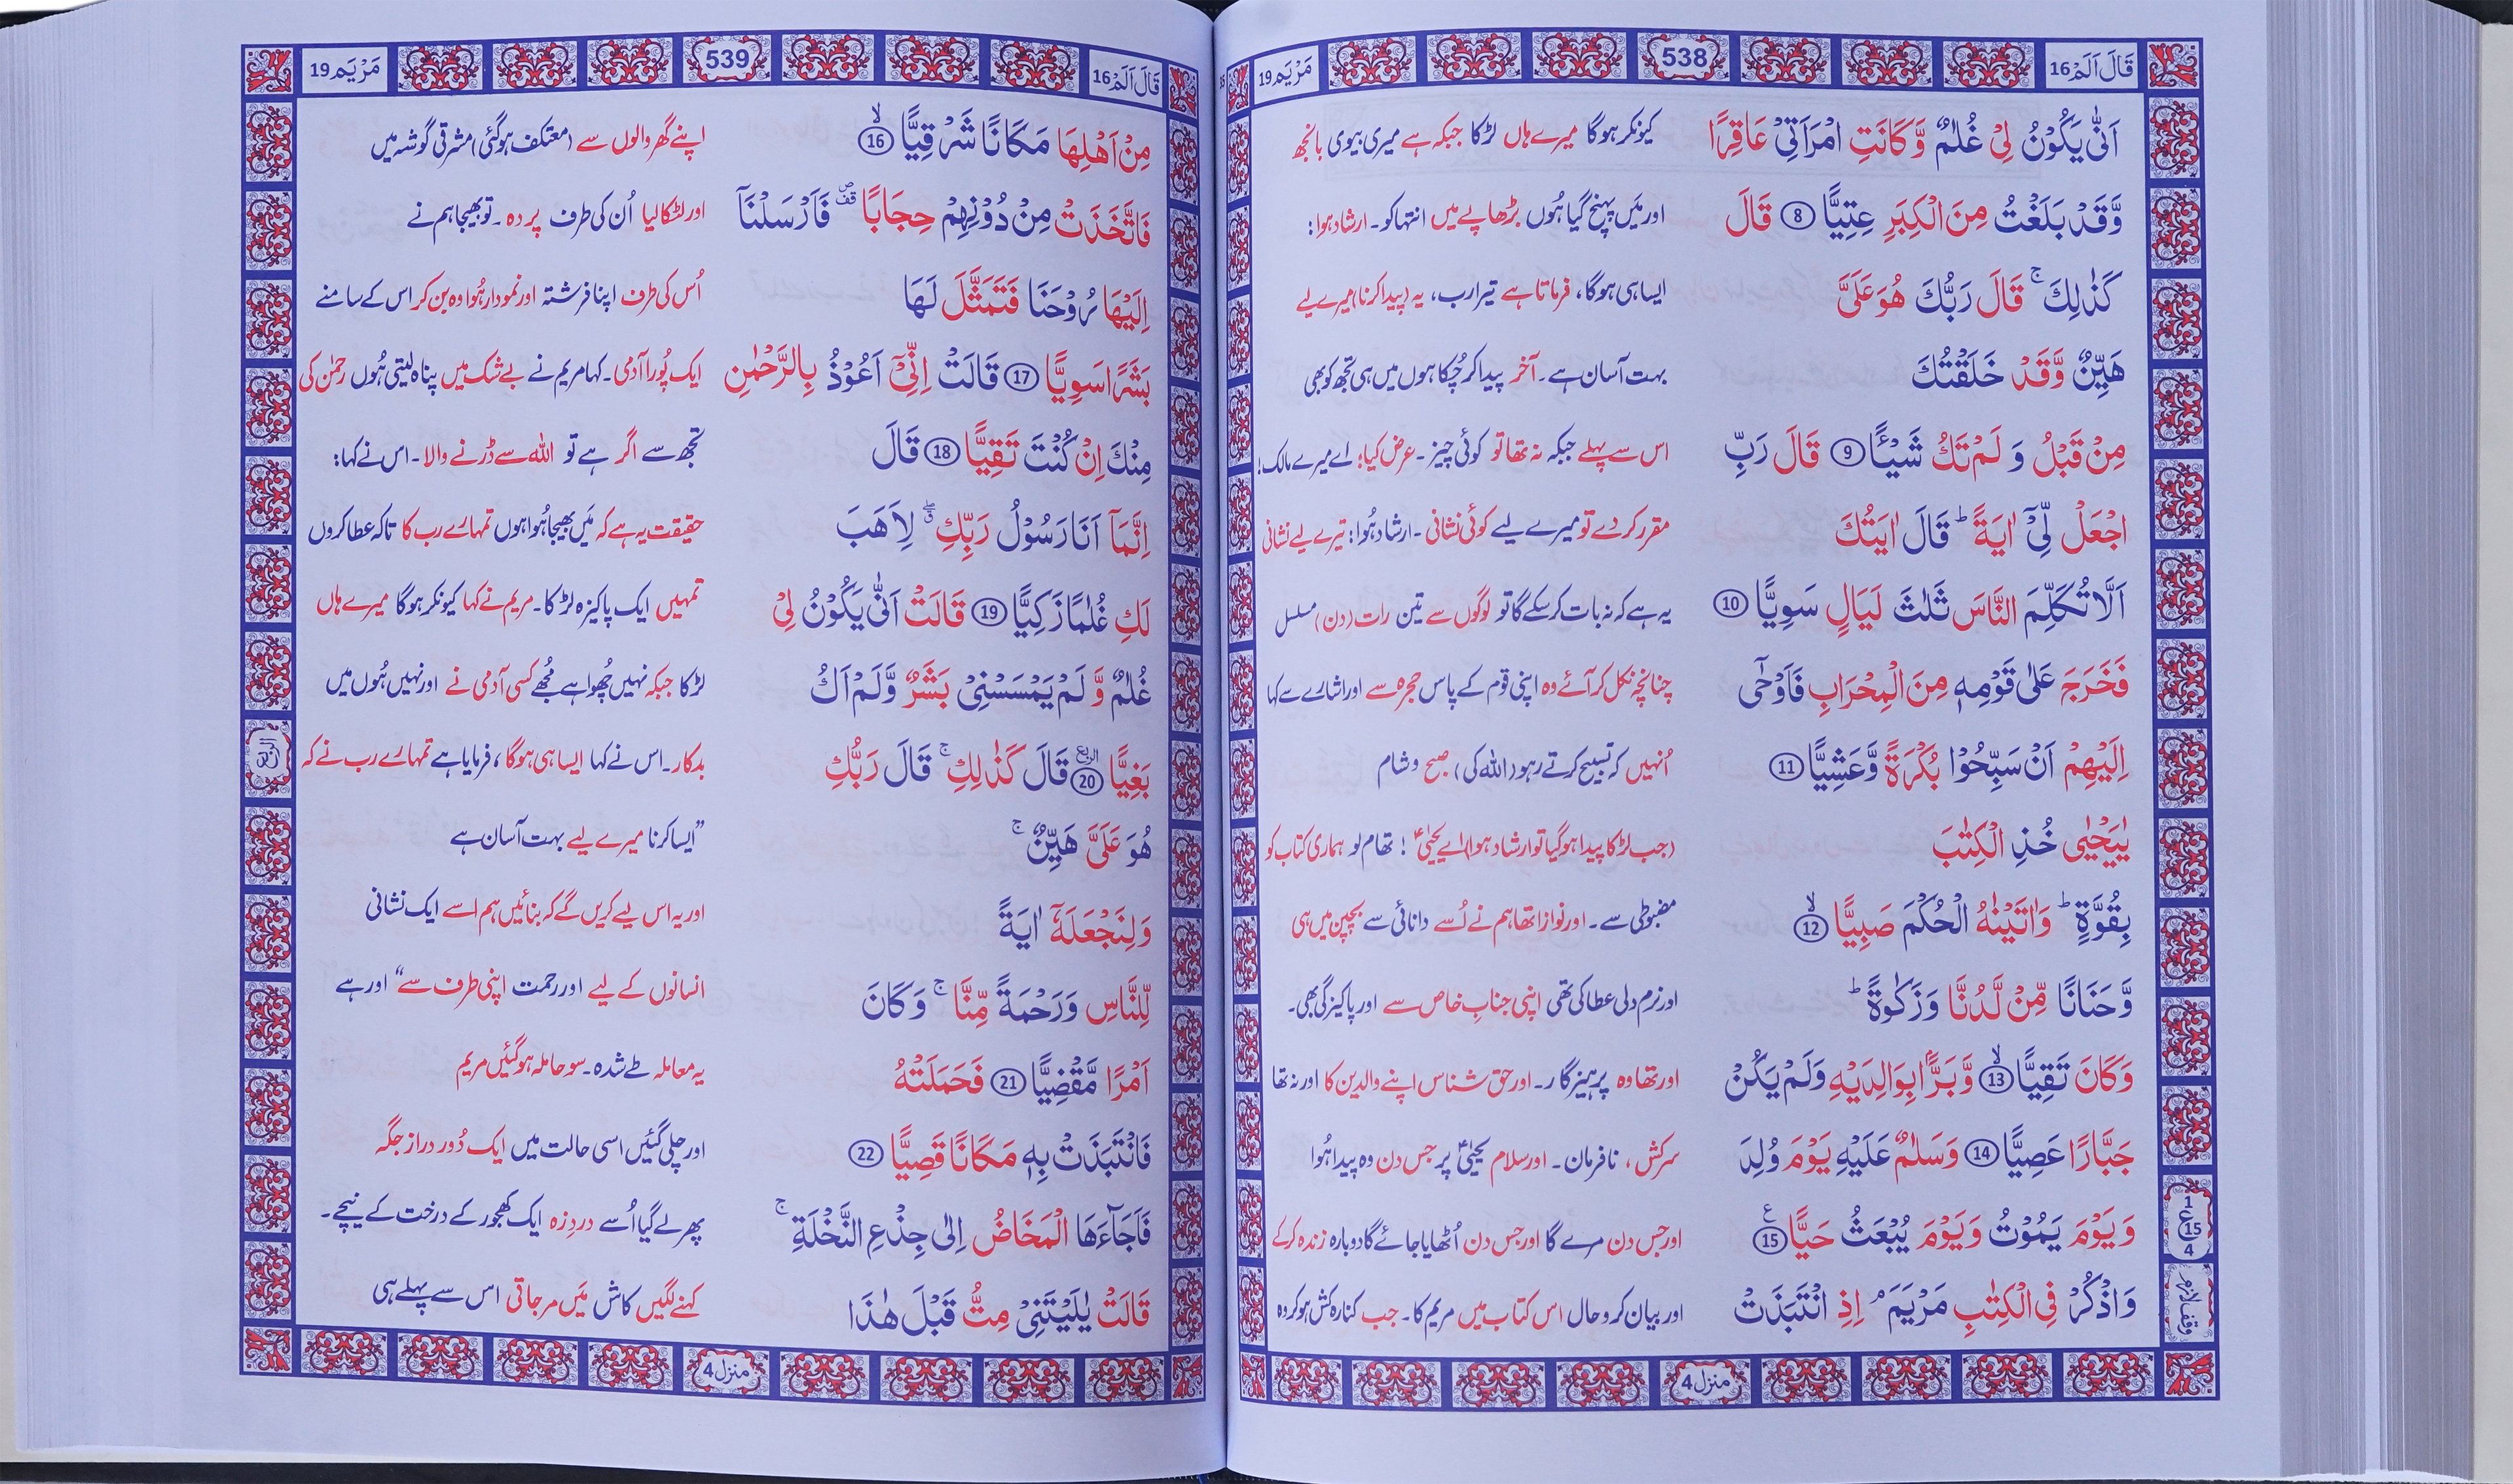 قَالَ اَلَمْ 16
538
مَرْيَم 19
اَنّٰى يَكُوْنُ لِيْ غُلٰمٌ وَّكَانَتِ امْرَاَتِيْ عَاقِرًا کیونکر ہوگا میرے ہاں لڑکا جبکہ ہے میری بیوی بانجھ
وَّقَدْ بَلَغْتُ مِنَ الْكِبَرِ عِتِيًّا 8 قَالَ اور میَں پہنچ گیا ہُوں بڑھاپے میں انتہا کو۔ ارشاد ہوا:
كَذٰلِكَ ۚ قَالَ رَبُّكَ هُوَ عَلَيَّ ایسا ہی ہوگا، فرماتا ہے تیرا رب، یہ (پیدا کرنا) میرے لیے
هَيِّنٌ وَّقَدْ خَلَقْتُكَ بہت آسان ہے۔ آخر پیدا کر چُکا ہوں میں ہی تجھ کو بھی
مِنْ قَبْلُ وَ لَمْ تَكُ شَيْـًٔا 9 قَالَ رَبِّ اس سے پہلے جبکہ نہ تھا تو کوئی چیز۔ عرض کیا: اے میرے مالک!
اجْعَلْ لِّيْٓ اٰيَةً ؕ قَالَ اٰيَتُكَ مقرر کر دے تو میرے لیے کوئی نشانی۔ ارشاد ہُوا: تیرے لیے نشانی
اَلَّا تُكَلِّمَ النَّاسَ ثَلٰثَ لَيَالٍ سَوِيًّا 10 یہ ہے کہ نہ بات کر سکے گا تو لوگوں سے تین رات (دن) مسلسل
فَخَرَجَ عَلٰى قَوْمِهٖ مِنَ الْمِحْرَابِ فَاَوْحٰٓى چنانچہ نکل کر آئے وہ اپنی قوم کے پاس حجرہ سے اور اشارے سے کہا
اِلَيْهِمْ اَنْ سَبِّحُوْا بُكْرَةً وَّعَشِيًّا 11 اُنہیں کہ تسبیح کرتے رہو (اللہ کی) صبح و شام
يٰيَحْيٰى خُذِ الْكِتٰبَ (جب لڑکا پیدا ہوگیا تو ارشاد ہوا) اے یحییٰؑ ! تھام لو ہماری کتاب کو
بِقُوَّةٍ ؕ وَاٰتَيْنٰهُ الْحُكْمَ صَبِيًّا ۙ 12 مضبوطی سے۔ اور نوازا تھا ہم نے اُسے دانائی سے بچپن میں ہی
وَّحَنَانًا مِّنْ لَّدُنَّا وَزَكٰوةً ؕ اور نرم دلی عطا کی تھی اپنی جنابِ خاص سے اور پاکیزگی بھی۔
وَكَانَ تَقِيًّا ۙ 13 وَّبَرًّۢا بِوَالِدَيْهِ وَلَمْ يَكُنْ اور تھا وہ پرہیزگار۔ اور حق شناس اپنے والدین کا اور نہ تھا
جَبَّارًا عَصِيًّا 14 وَسَلٰمٌ عَلَيْهِ يَوْمَ وُلِدَ سرکش، نافرمان۔ اور سلام یحییٰؑ پر جس دن وہ پیدا ہُوا
وَيَوْمَ يَمُوْتُ وَيَوْمَ يُبْعَثُ حَيًّا 15 ع اور جس دن مرے گا اور جس دن اُٹھایا جائے گا دوبارہ زندہ کر کے
وَاذْكُرْ فِي الْكِتٰبِ مَرْيَمَ ۘ اِذِ انْتَبَذَتْ اور بیان کرو حال اس کتاب میں مریم کا۔ جب کنارہ کش ہو کر وہ
1
ع 15
4
وقف لازم
منزل 4
قَالَ اَلَمْ 16
539
مَرْيَم 19
مِنْ اَهْلِهَا مَكَانًا شَرْقِيًّا ۙ 16 اپنے گھر والوں سے (معتکف ہوگئی) مشرقی گوشہ میں
فَاتَّخَذَتْ مِنْ دُوْنِهِمْ حِجَابًا ۪ۛ فَاَرْسَلْنَآ اور لٹکا لیا اُن کی طرف پردہ۔ تو بھیجا ہم نے
اِلَيْهَا رُوْحَنَا فَتَمَثَّلَ لَهَا اُس کی طرف اپنا فرشتہ اور نمودار ہُوا وہ بن کر اس کے سامنے
بَشَرًا سَوِيًّا 17 قَالَتْ اِنِّيْٓ اَعُوْذُ بِالرَّحْمٰنِ ایک پُورا آدمی۔ کہا مریم نے بے شک میں پناہ لیتی ہُوں رحمٰن کی
مِنْكَ اِنْ كُنْتَ تَقِيًّا 18 قَالَ تجھ سے اگر ہے تو اللہ سے ڈرنے والا۔ اس نے کہا:
اِنَّمَآ اَنَا رَسُوْلُ رَبِّكِ ۖ لِاَهَبَ حقیقت یہ ہے کہ میَں بھیجا ہُوا ہوں تمہارے رب کا تاکہ عطا کروں
لَكِ غُلٰمًا زَكِيًّا 19 قَالَتْ اَنّٰى يَكُوْنُ لِيْ تمہیں ایک پاکیزہ لڑکا۔ مریم نے کہا کیونکر ہوگا میرے ہاں
غُلٰمٌ وَّ لَمْ يَمْسَسْنِيْ بَشَرٌ وَّلَمْ اَكُ لڑکا جبکہ نہیں چُھوا ہے مُجھے کسی آدمی نے اور نہیں ہُوں میں
بَغِيًّا 20 الربع قَالَ كَذٰلِكِ ۚ قَالَ رَبُّكِ بدکار۔ اس نے کہا ایسا ہی ہوگا، فرمایا ہے تمہارے رب نے کہ
هُوَ عَلَيَّ هَيِّنٌ ۚ ”ایسا کرنا میرے لیے بہت آسان ہے
وَلِنَجْعَلَهٗٓ اٰيَةً اور یہ اس لیے کریں گے کہ بنائیں ہم اسے ایک نشانی
لِّلنَّاسِ وَرَحْمَةً مِّنَّا ۚ وَكَانَ انسانوں کے لیے اور رحمت اپنی طرف سے“ اور ہے
اَمْرًا مَّقْضِيًّا 21 فَحَمَلَتْهُ یہ معاملہ طے شدہ۔ سو حاملہ ہوگئیں مریم
فَانْتَبَذَتْ بِهٖ مَكَانًا قَصِيًّا 22 اور چلی گئیں اسی حالت میں ایک دُور دراز جگہ
فَاَجَآءَهَا الْمَخَاضُ اِلٰى جِذْعِ النَّخْلَةِ ۚ پھر لے گیا اُسے دردِزہ ایک کھجور کے درخت کے نیچے۔
قَالَتْ يٰلَيْتَنِيْ مِتُّ قَبْلَ هٰذَا کہنے لگیں کاش میَں مر جاتی اس سے پہلے ہی
الربع
منزل 4